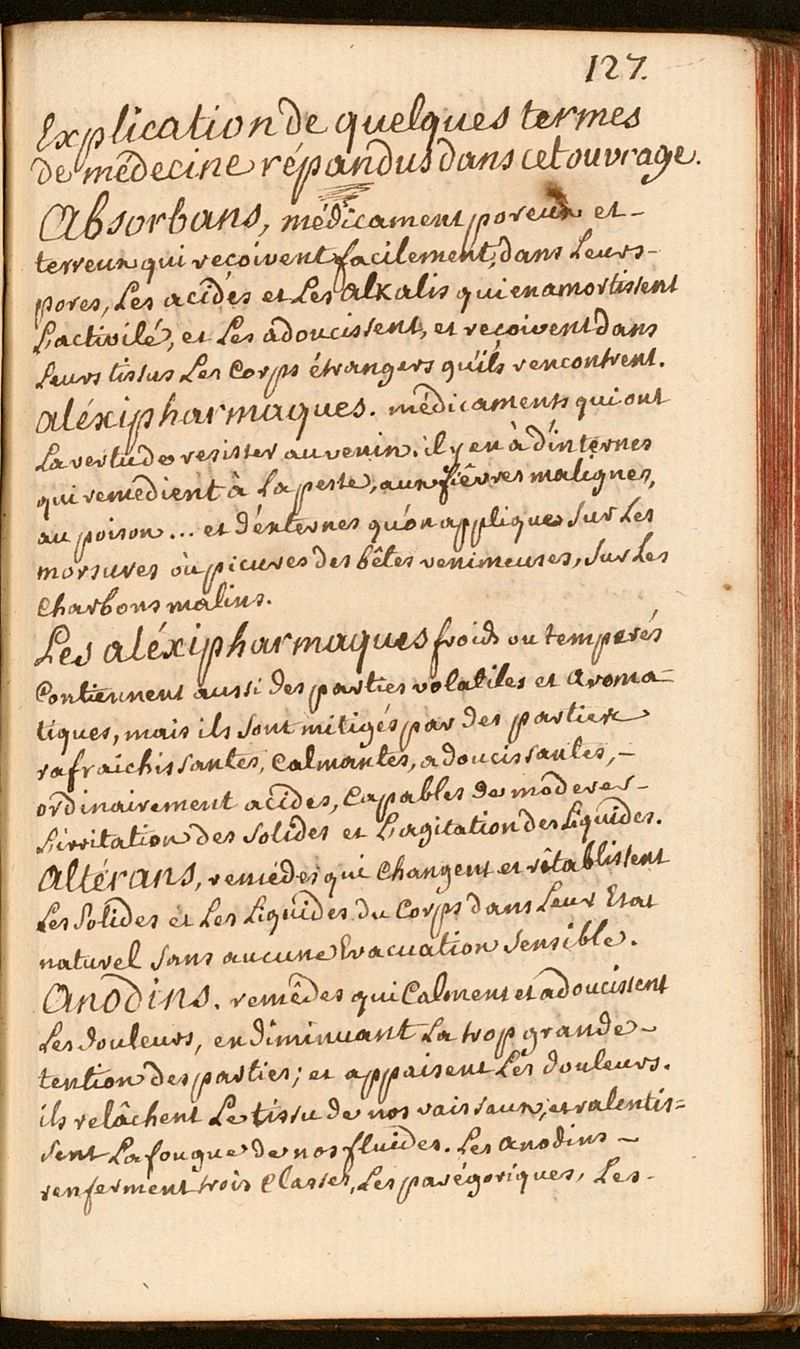 127.
Explication de quelques termes
de médecine répandus dans cet ouvrage.
Absorbans, médicament poreux et-
terreux qui reçoivent facilement, dans leurs-
pores, Les acides et Les alkalis qui en amortissent
L'activité, et Les adoucissent, et reçoivent dans
leurs tissus Les Corps étrangers qu'ils rencontrent.
aléxipharmaques. médicaments qui ont
La vertu de resister au venin. il y en à d'internes
qui remédient à La peste, aux fiêvres malignes,
au poison... et d'externes qu'on applique sur Les
morsures où picures des bêtes venimeuses, sur Les
Charbons malins.
Les aléxipharmaques froids ou temperés
Contiennent aussi des parties volatiles et aroma=
tiques, mais ils sont mitigés par des parties
rafraichissantes, Calmantes, adoucissantes,-
ordinairement acides, Capables de moderer-
L'irritation des solides et L'agitation des Liquides.
Altérans, remédes qui Changent et rêtablissent
Les Solides et Les Liquides du Corps dans Leur Etat
naturel sans aucune Evacuation sensible.
Anodins. remêdes qui Calment et adoucissent
Les douleurs, en diminuant La trop grande-
tention des parties; et appaisent Les douleurs.
ils relâchent Le tissu de nos vaisseaux, et ralentis=
sent La fougue de nos fluides. Les anodins-
renferment trois Classes, Les parégoriques, Les-